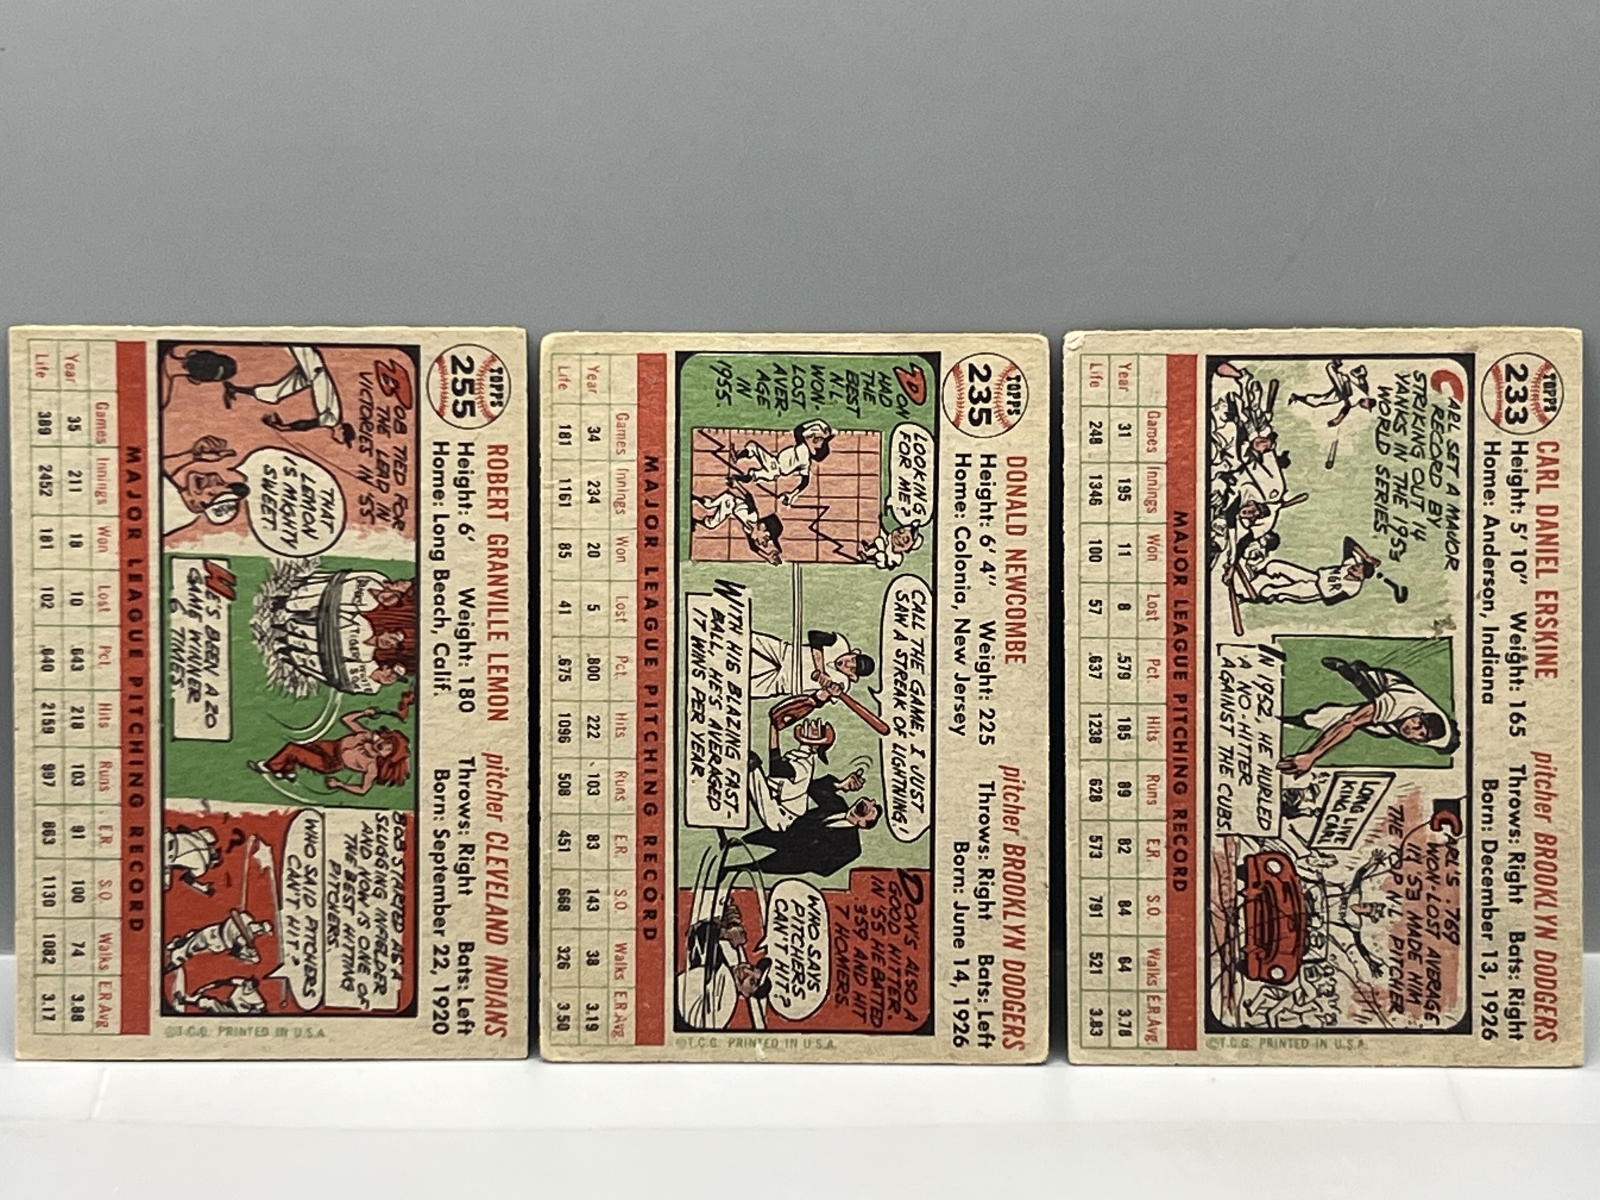 TOPPS
255
ROBERT GRANVILLE LEMON pitcher CLEVELAND INDIANS
Height: 6' Weight: 180 Throws: Right Bats: Left
Home: Long Beach, Calif. Born: September 22, 1920
BOB TIED FOR
THE LEAD IN
VICTORIES IN '55
THAT
LEMON
IS MIGHTY
SWEET!
HE'S BEEN A 20
GAME WINNER
6 TIMES.
BOB STARTED AS A
SLUGGING INFIELDER
AND NOW IS ONE OF
THE BEST HITTING
PITCHERS.
WHO SAID PITCHERS
CAN'T HIT?
©T.C.G. PRINTED IN U.S.A.
MAJOR LEAGUE PITCHING RECORD
Games Innings Won Lost Pct. Hits Runs E.R. S.O. Walks E.R.Avg.
Year 35 211 18 10 .643 218 103 91 100 74 3.88
Life 389 2452 181 102 .640 2159 997 863 1130 1082 3.17
TOPPS
235
DONALD NEWCOMBE pitcher BROOKLYN DODGERS
Height: 6' 4" Weight: 225 Throws: Right Bats: Left
Home: Colonia, New Jersey Born: June 14, 1926
DON
HAD
THE
BEST
N.L.
WON-
LOST
AVER-
AGE
IN
1955.
LOOKING
FOR ME?
CALL THE GAME, I JUST
SAW A STREAK OF LIGHTNING!
WITH HIS BLAZING FAST-
BALL, HE'S AVERAGED
17 WINS PER YEAR.
DON'S ALSO A
GOOD HITTER.
IN '55 HE BATTED
.359 AND HIT
7 HOMERS.
WHO SAYS
PITCHERS
CAN'T HIT?
©T.C.G. PRINTED IN U.S.A.
MAJOR LEAGUE PITCHING RECORD
Games Innings Won Lost Pct. Hits Runs E.R. S.O. Walks E.R.Avg.
Year 34 234 20 5 .800 222 103 83 143 38 3.19
Life 181 1161 85 41 .675 1096 508 451 668 326 3.50
TOPPS
233
CARL DANIEL ERSKINE pitcher BROOKLYN DODGERS
Height: 5' 10" Weight: 165 Throws: Right Bats: Right
Home: Anderson, Indiana Born: December 13, 1926
CARL SET A MAJOR
RECORD BY
STRIKING OUT 14
YANKS IN THE 1953
WORLD SERIES
MGR
IN 1952, HE HURLED
A NO-HITTER
AGAINST THE CUBS.
LONG LIVE
KING CARL
CARL'S .769
WON-LOST AVERAGE
IN '53 MADE HIM
THE TOP N.L. PITCHER.
©T.C.G. PRINTED IN U.S.A.
MAJOR LEAGUE PITCHING RECORD
Games Innings Won Lost Pct. Hits Runs E.R. S.O. Walks E.R.Avg.
Year 31 195 11 8 .579 185 89 82 84 64 3.78
Life 248 1346 100 57 .637 1238 628 573 791 521 3.83